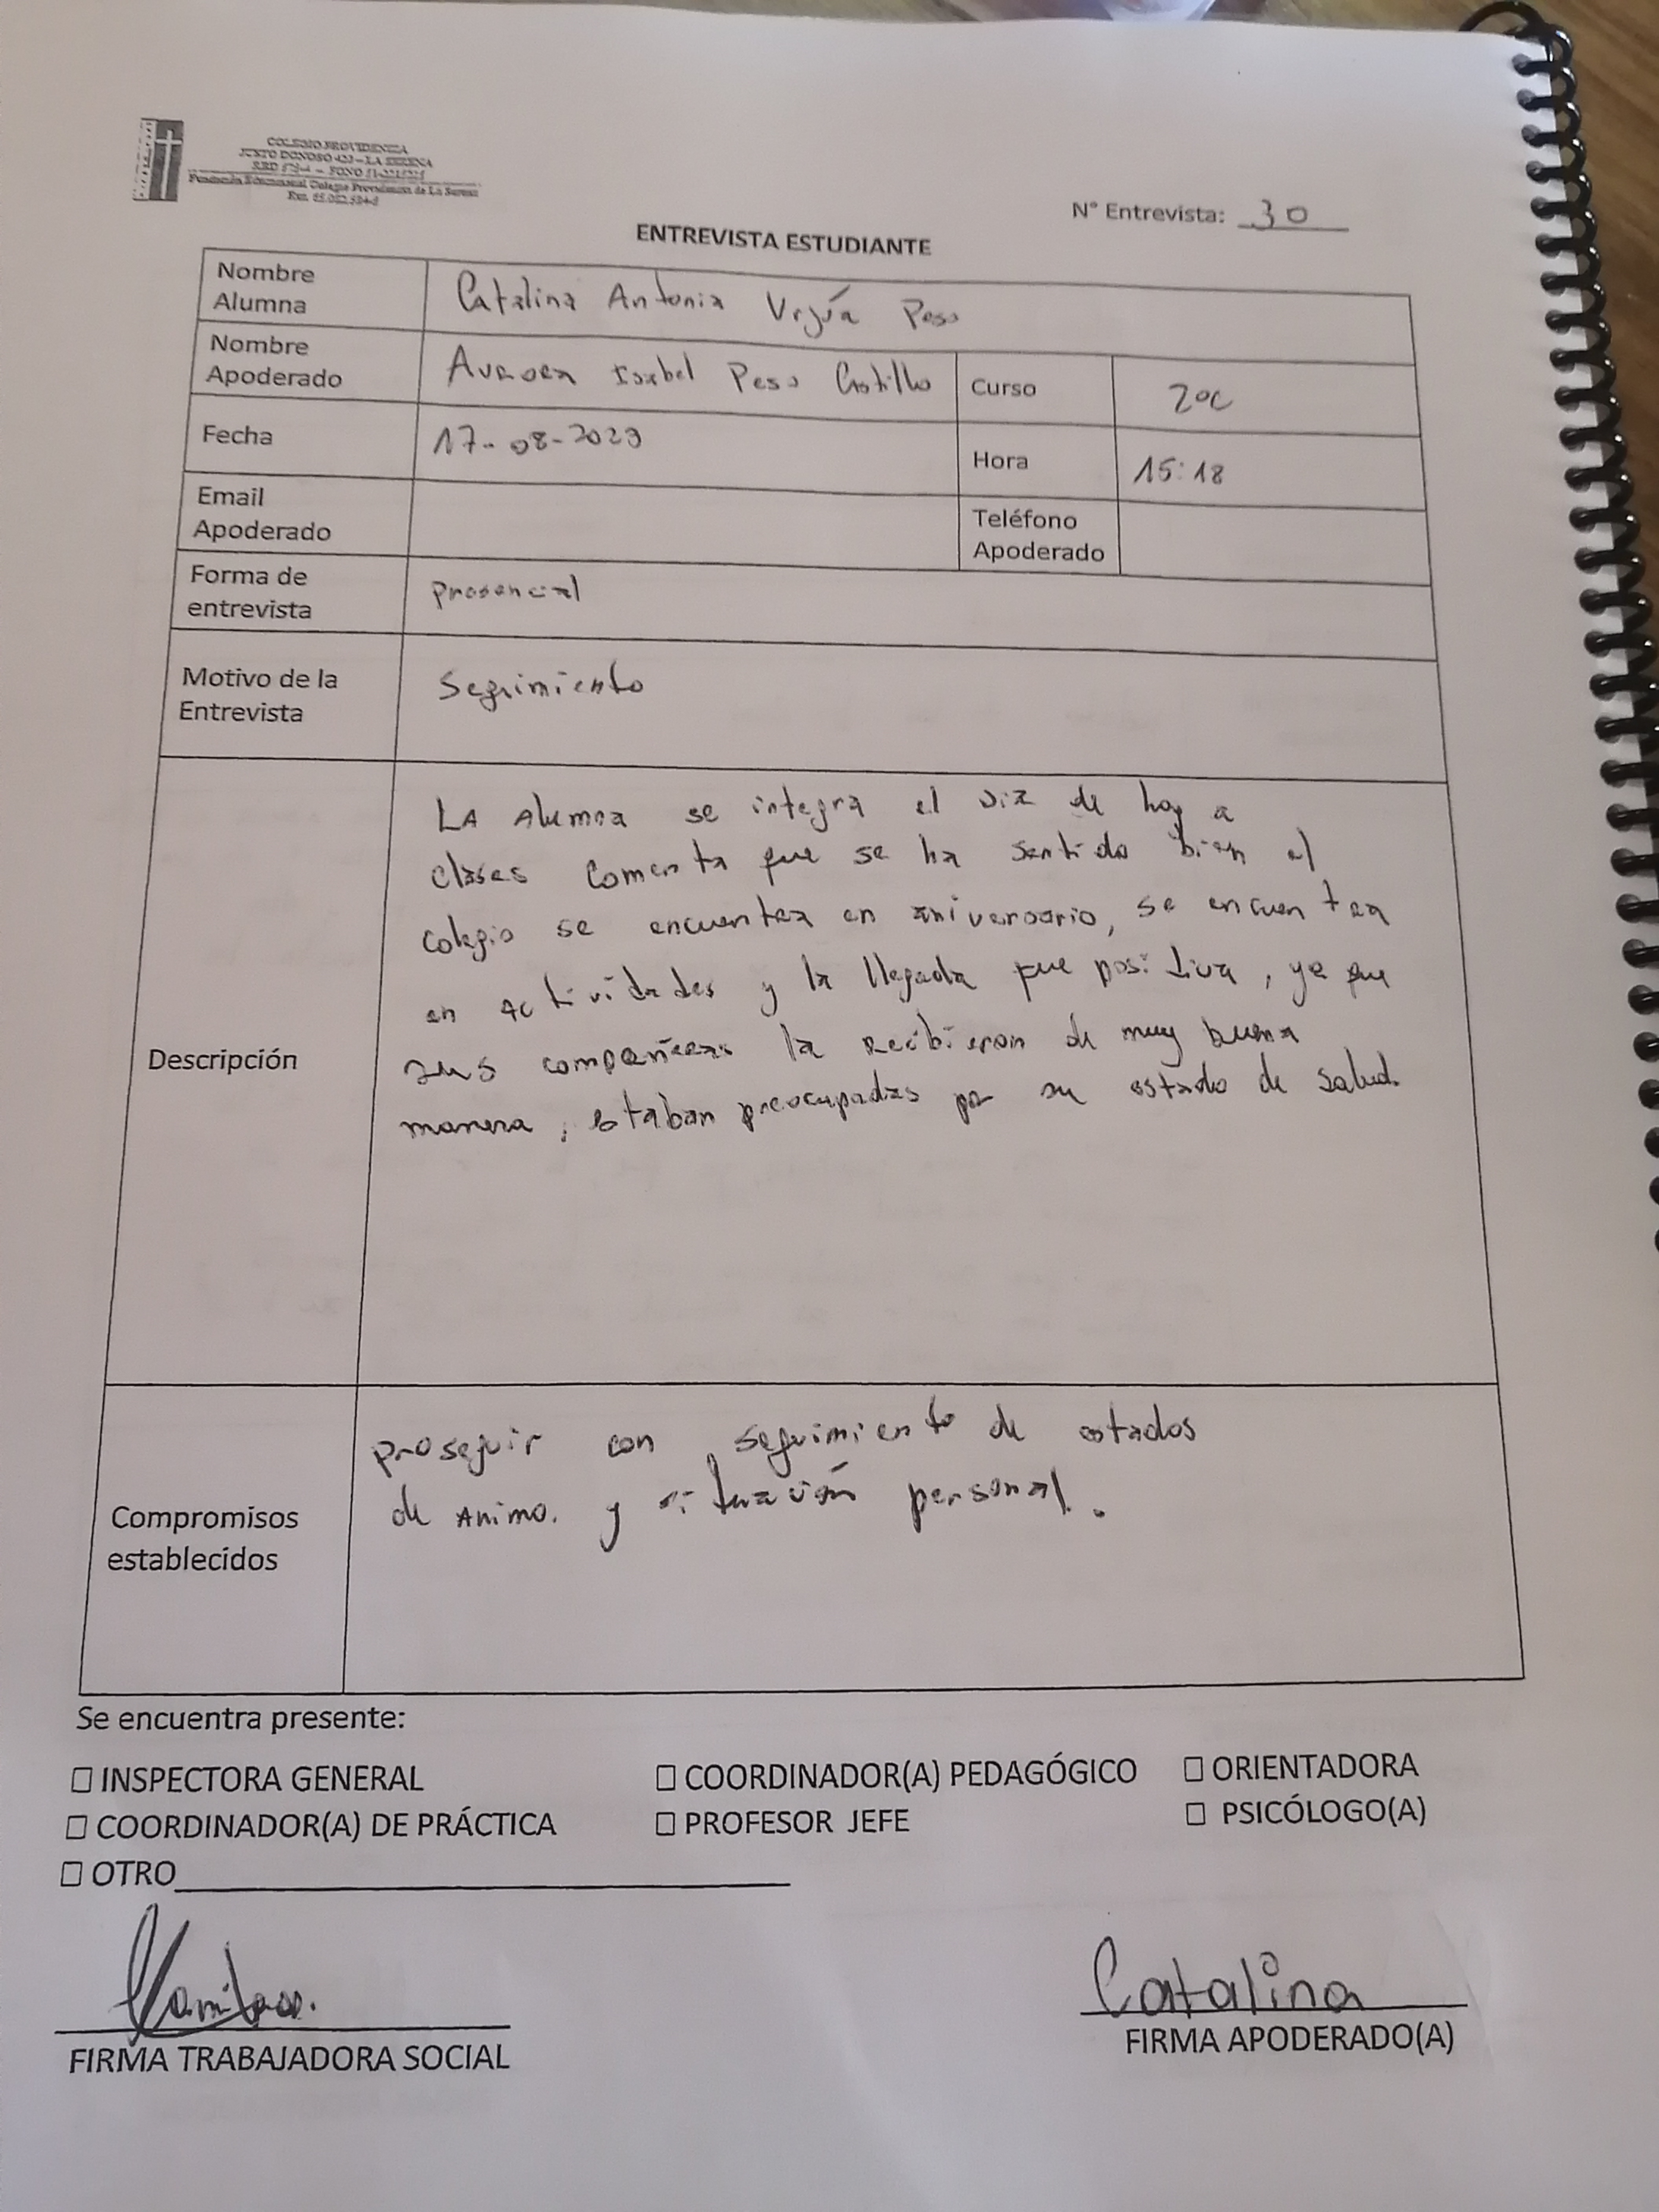 COLEGIO PROVIDENCIA
JUSTO DONOSO 420 – LA SERENA
Fundación Educacional Colegio Providencia de La Serena
N° Entrevista: 30
ENTREVISTA ESTUDIANTE
Nombre Alumna
Catalina Antonia Peso
Nombre Apoderado
Aurora Isabel Peso Castillo
Curso
2ºC
Fecha
17-08-2023
Hora
15:18
Email Apoderado
Teléfono Apoderado
Forma de entrevista
presencial
Motivo de la Entrevista
Seguimiento
Descripción
LA Alumna se integra el día de hoy a
clases comenta que se ha sentido bien el
colegio se encuentra en aniversario, se encuentra
en actividades y la llegada fue positiva, ya que
sus compañeras la recibieron de muy buena
manera, estaban preocupadas por su estado de salud.
Compromisos establecidos
proseguir con seguimiento de estados
de Animo. y situación personal.
Se encuentra presente:
☐ INSPECTORA GENERAL ☐ COORDINADOR(A) PEDAGÓGICO ☐ ORIENTADORA
☐ COORDINADOR(A) DE PRÁCTICA ☐ PROFESOR JEFE ☐ PSICÓLOGO(A)
☐ OTRO
Catalina
FIRMA TRABAJADORA SOCIAL
FIRMA APODERADO(A)